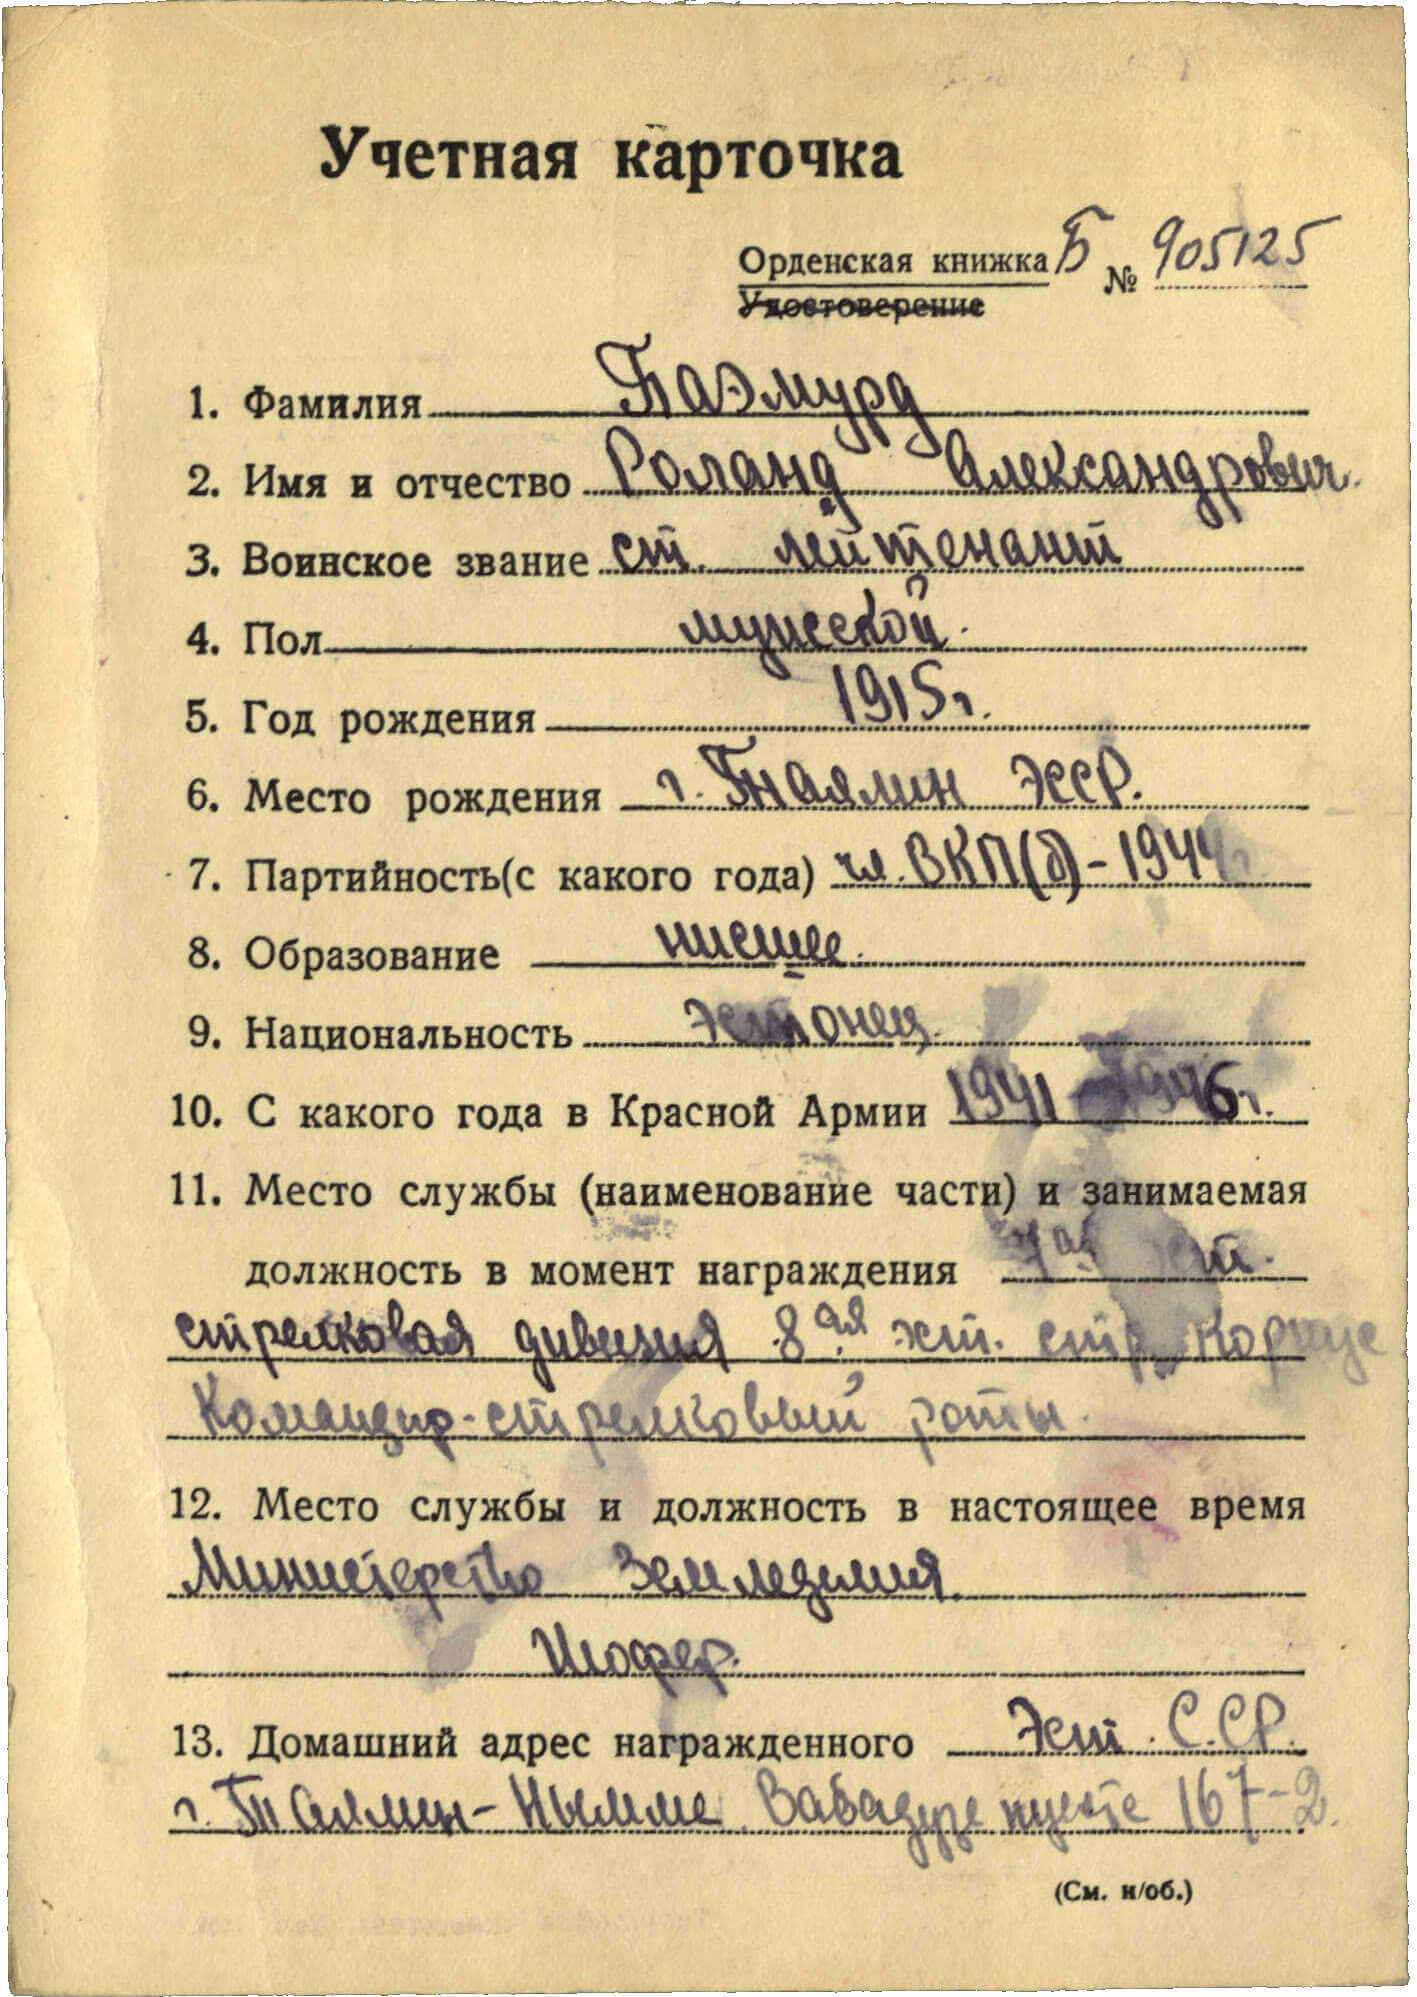 Учетная карточка
Орденская книжка Б № 905125
Удостоверение
1. Фамилия Паэмурд
2. Имя и отчество Роланд Александрович.
3. Воинское звание ст. лейтенант
4. Пол мужской.
5. Год рождения 1915 г.
6. Место рождения г. Таллин ЭССР.
7. Партийность(с какого года) чл. ВКП(б) - 1944 г.
8. Образование нисшее.
9. Национальность Эстонец.
10. С какого года в Красной Армии 1941 - 1946 г.
11. Место службы (наименование части) и занимаемая
должность в момент награждения 7ая эст.
стрелковая дивизия 8ая эст. стр. Корпус
Командир-стрелковый роты.
12. Место службы и должность в настоящее время
Министерство Земледелия.
Шофер.
13. Домашний адрес награжденного Эст. С.СР.
г. Таллин - Нымме, Вабадузе пуесте 167-2.
(См. н/об.)